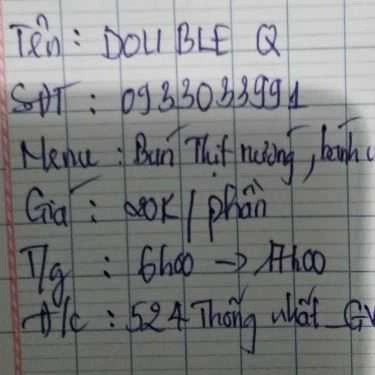 Tên : DOUBLE Q
SĐT : 0933033991
Menu : Bún Thịt nướng, bánh
Giá : 20K / phần
T/g : 6h00 -> 17h00
Đ/c : 524 Thống nhất_GV